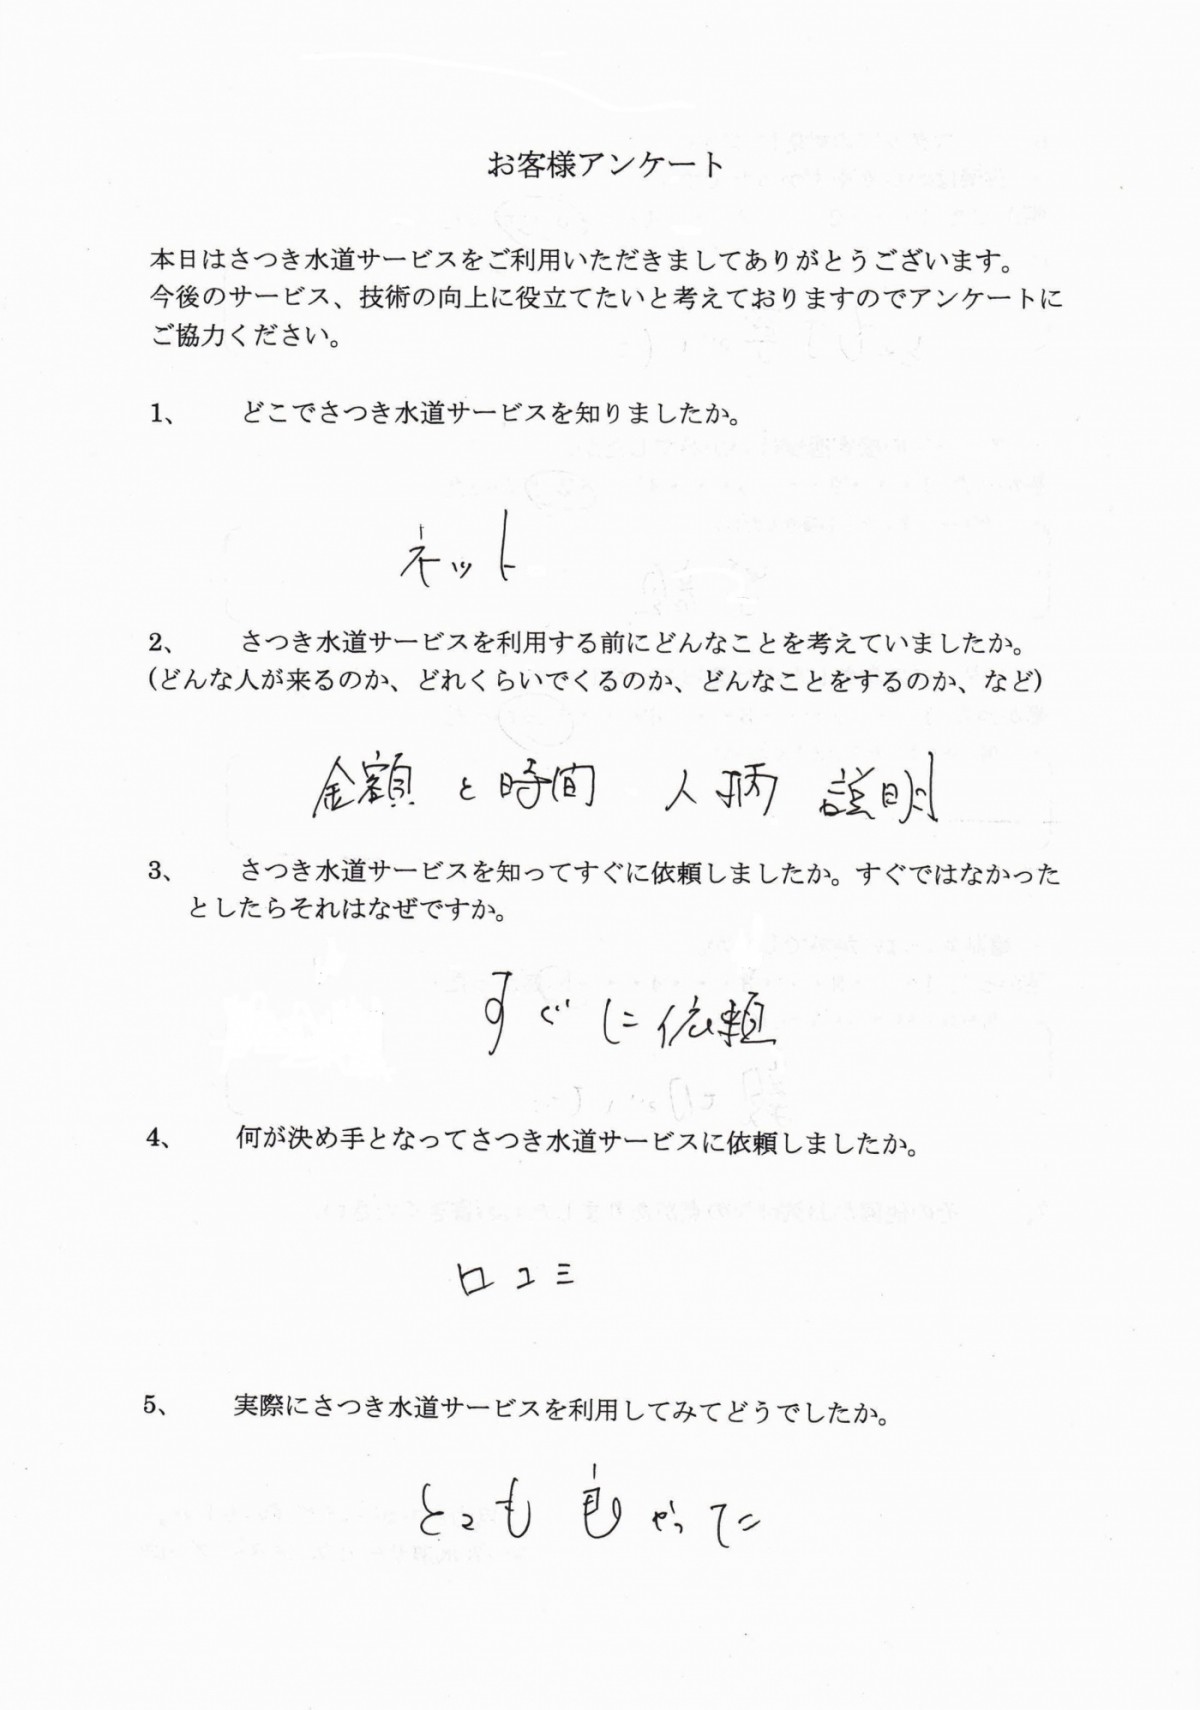 お客様アンケート
本日はさつき水道サービスをご利用いただきましてありがとうございます。
今後のサービス、技術の向上に役立てたいと考えておりますのでアンケートに
ご協力ください。
1、 どこでさつき水道サービスを知りましたか。
ネット
2、 さつき水道サービスを利用する前にどんなことを考えていましたか。
(どんな人が来るのか、どれくらいでくるのか、どんなことをするのか、など)
金額と時間 人柄 説明
3、 さつき水道サービスを知ってすぐに依頼しましたか。すぐではなかった
としたらそれはなぜですか。
すぐに依頼
4、 何が決め手となってさつき水道サービスに依頼しましたか。
口コミ
5、 実際にさつき水道サービスを利用してみてどうでしたか。
とても良かった